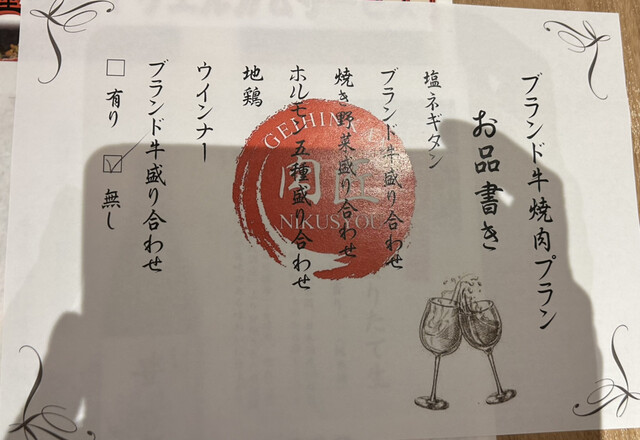 ブランド牛焼肉プラン
お品書き
塩ネギタン
ブランド牛盛り合わせ
焼き野菜盛り合わせ
ホルモン五種盛り合わせ
地鶏
ウインナー
ブランド牛盛り合わせ
□ 有り
☑ 無し
肉匠